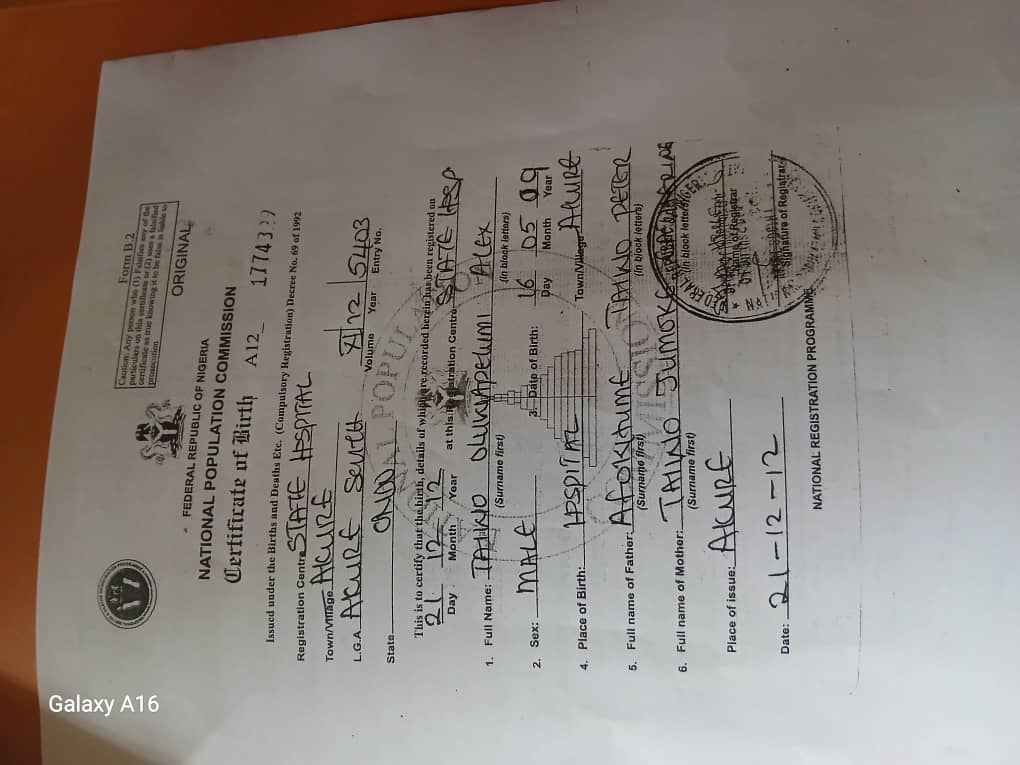 Caution: Any person who (1) Falsifies any of the
particulars on this certificate or (2) uses a falsified
certificate as true knowing it to be false is liable to
prosecution
Form B.2
ORIGINAL
FEDERAL REPUBLIC OF NIGERIA
NATIONAL POPULATION COMMISSION
Certificate of Birth
A12_ 1774
Issued under the Births and Deaths Etc. (Compulsory Registration) Decree No. 69 of 1992
Registration Centre STATE HOSPITAL
Town/Village AKURE
L.G.A. AKURE SOUTH
Volume Year Entry No. 5403
State ONDO
This is to certify that the birth, details of which are recorded herein has been registered on
21 12 12 at this registration Centre STATE HOSP
Day Month Year
1. Full Name: TAIWO OLUWAPELUMI ALEX
(Surname first) (In block letters)
2. Sex: MALE 3. Date of Birth: 16 05 09
Day Month Year
4. Place of Birth: HOSPITAL Town/Village AKURE
5. Full name of Father: PETER
(Surname first) (In block letters)
6. Full name of Mother: TAIWO JUMOKE
(Surname first) (In block letters)
Place of issue: AKURE
Name of Registrar
Date: 21-12-12
Signature of Registrar
NATIONAL REGISTRATION PROGRAMME
Galaxy A16